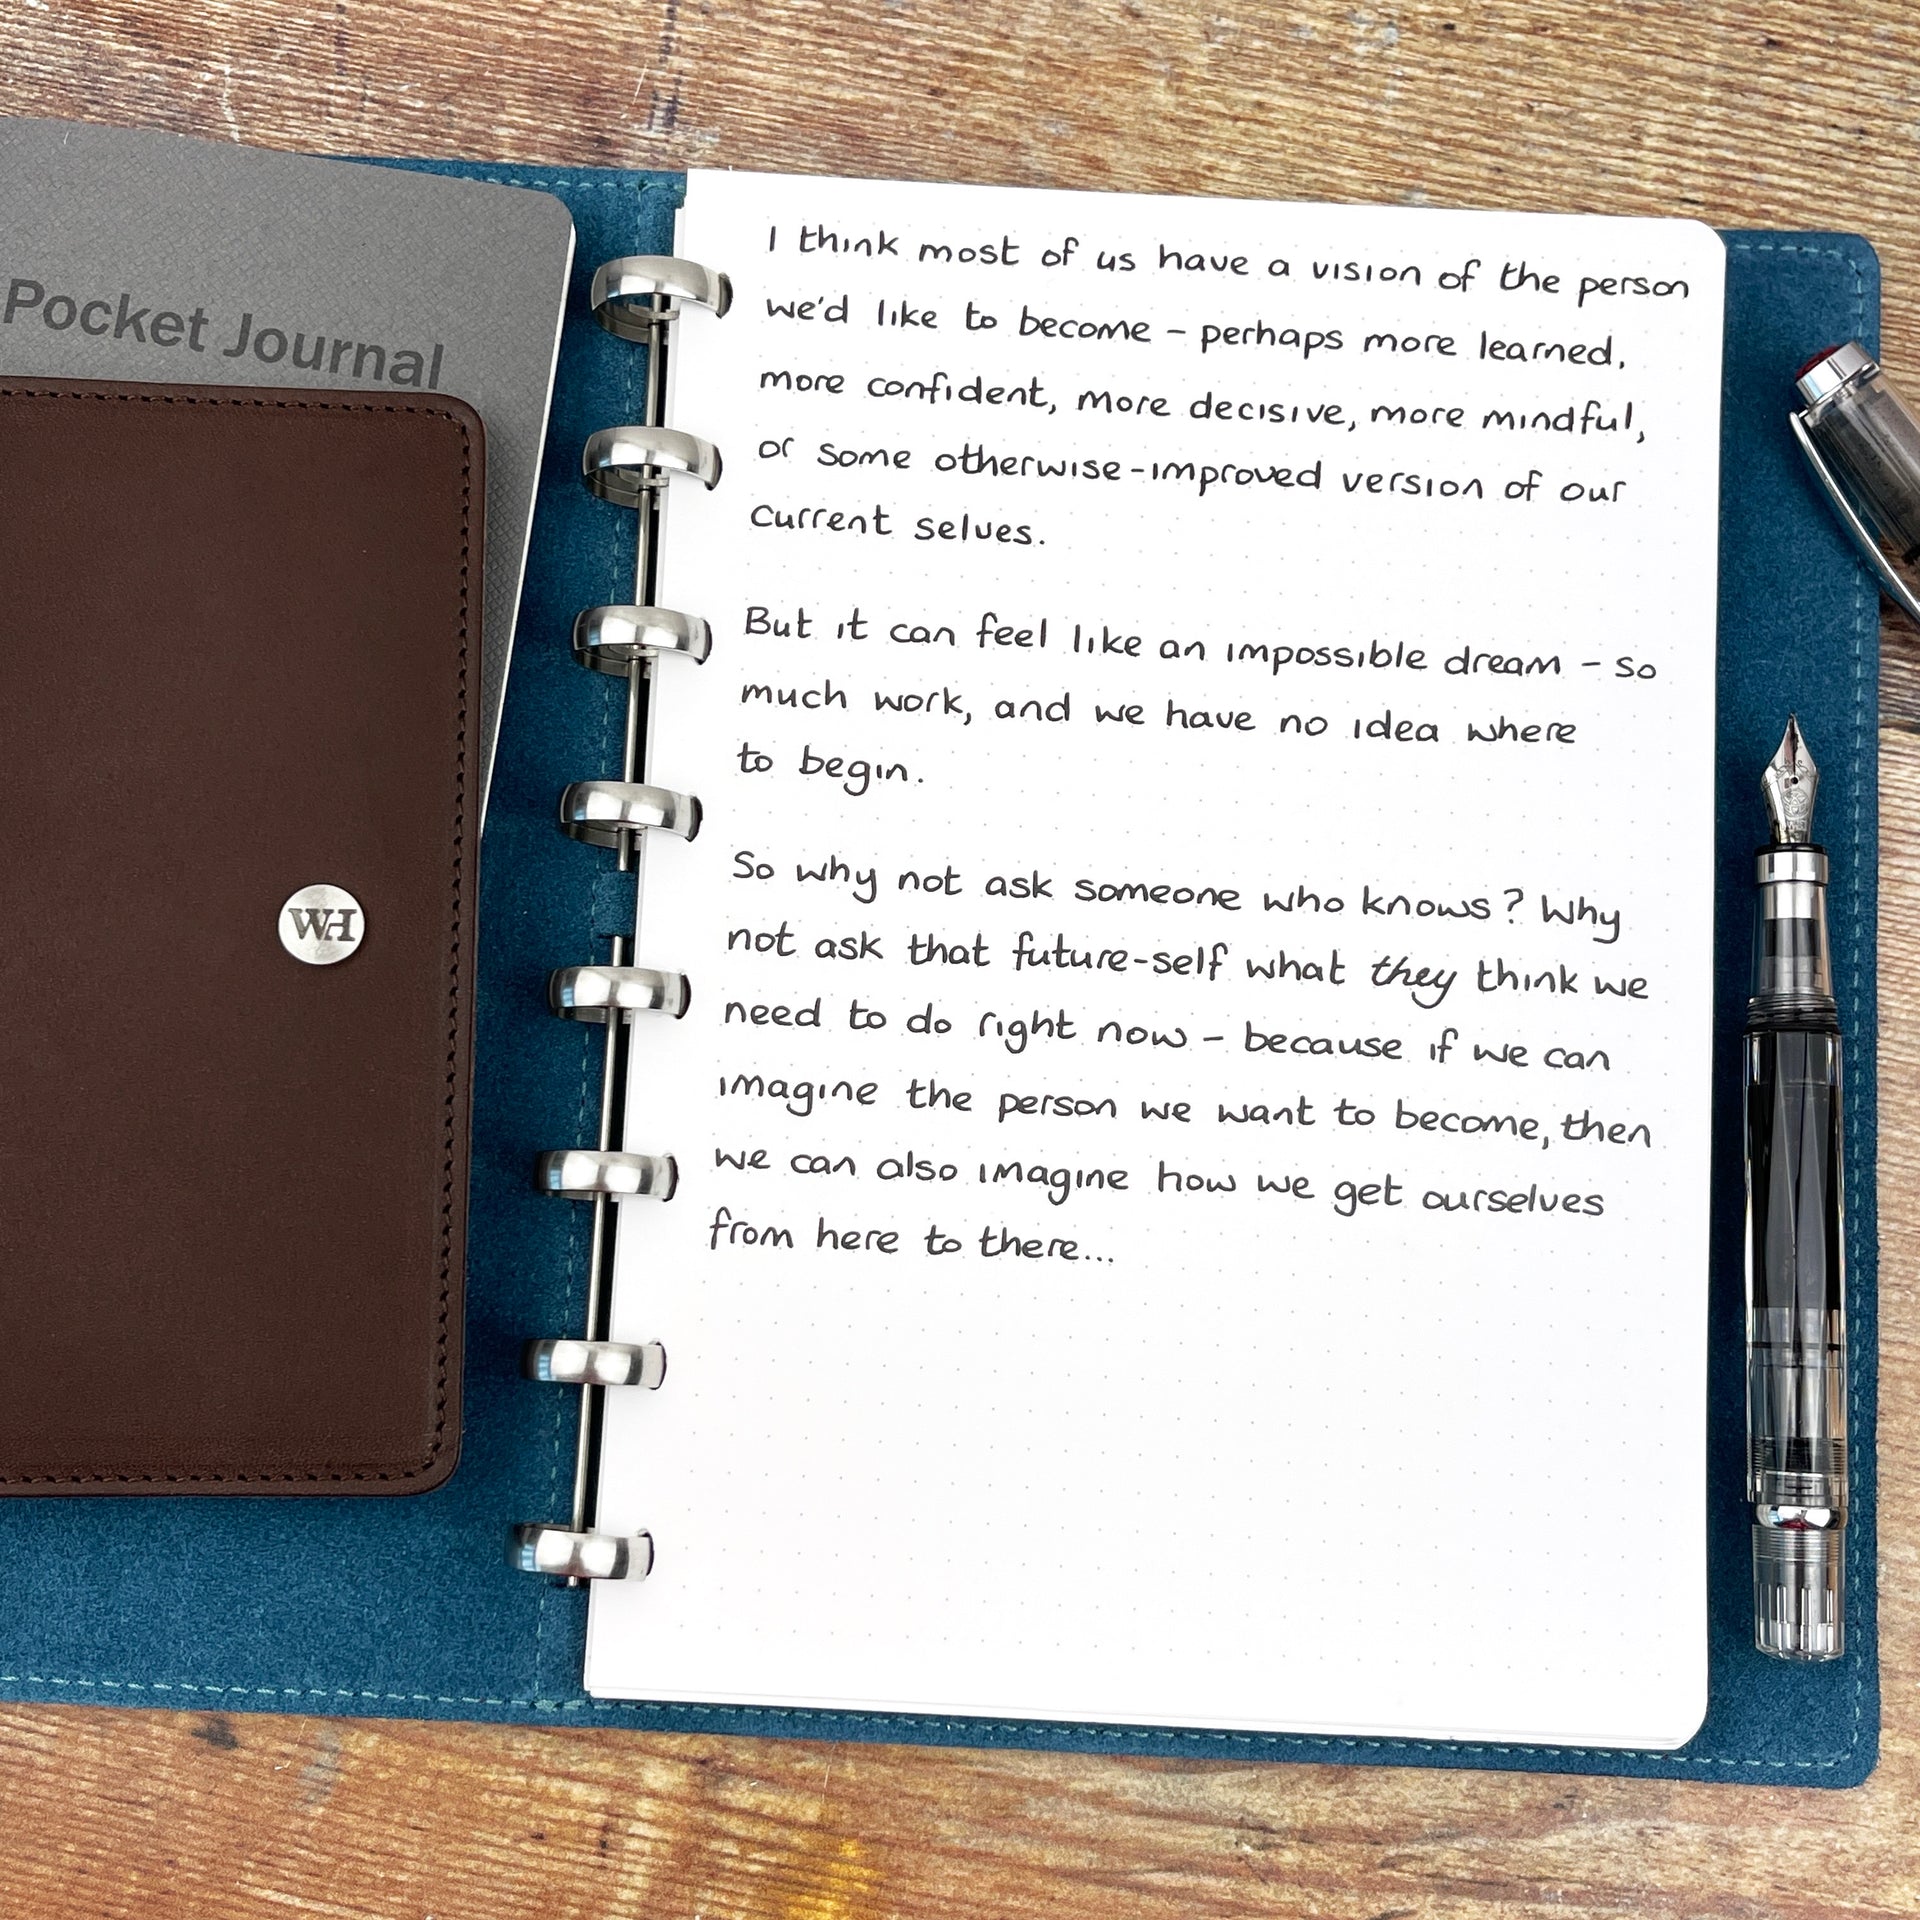 Pocket Journal
WH
I think most of us have a vision of the person
we'd like to become – perhaps more learned,
more confident, more decisive, more mindful,
or some otherwise-improved version of our
current selves.
But it can feel like an impossible dream – so
much work, and we have no idea where
to begin.
So why not ask someone who knows? Why
not ask that future-self what they think we
need to do right now – because if we can
imagine the person we want to become, then
we can also imagine how we get ourselves
from here to there...